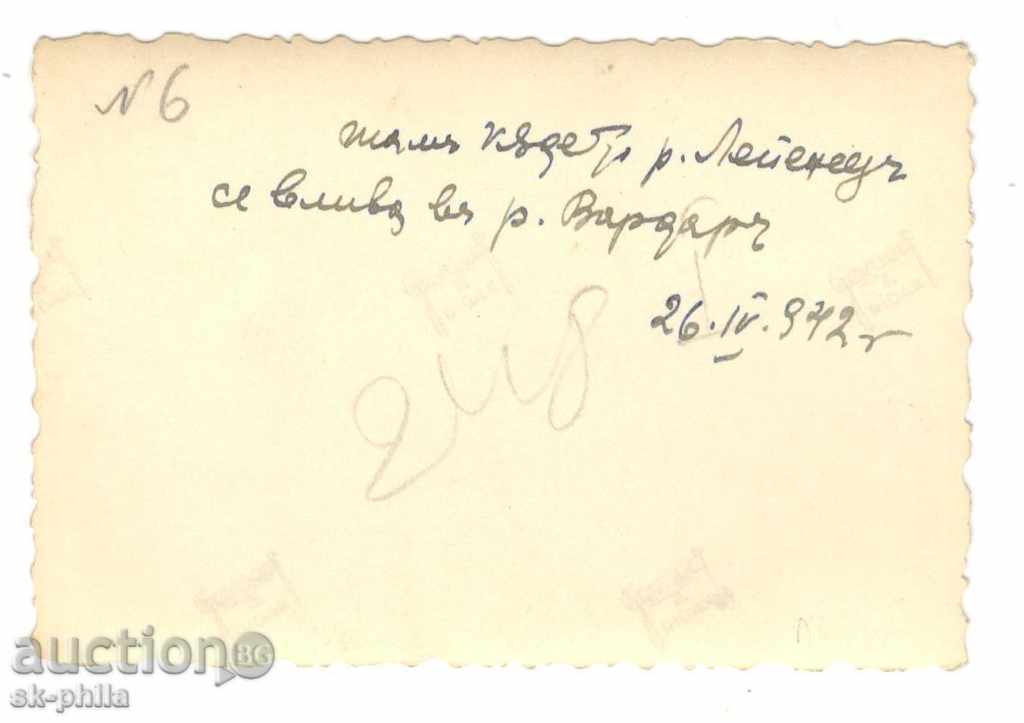 N 6
тамъ кѫдето р. Лепенецъ
се влива въ р. Вардаръ
26.IV.942 г
auction BG
sk-phila